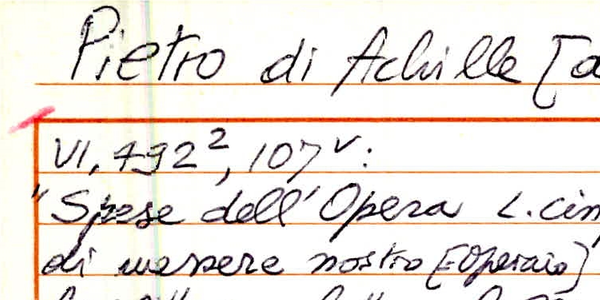 Pietro di Achille [a
VI, 792², 107ᵛ:
"Spese dell'Opera L. cin
di messere nostro [Operaio]